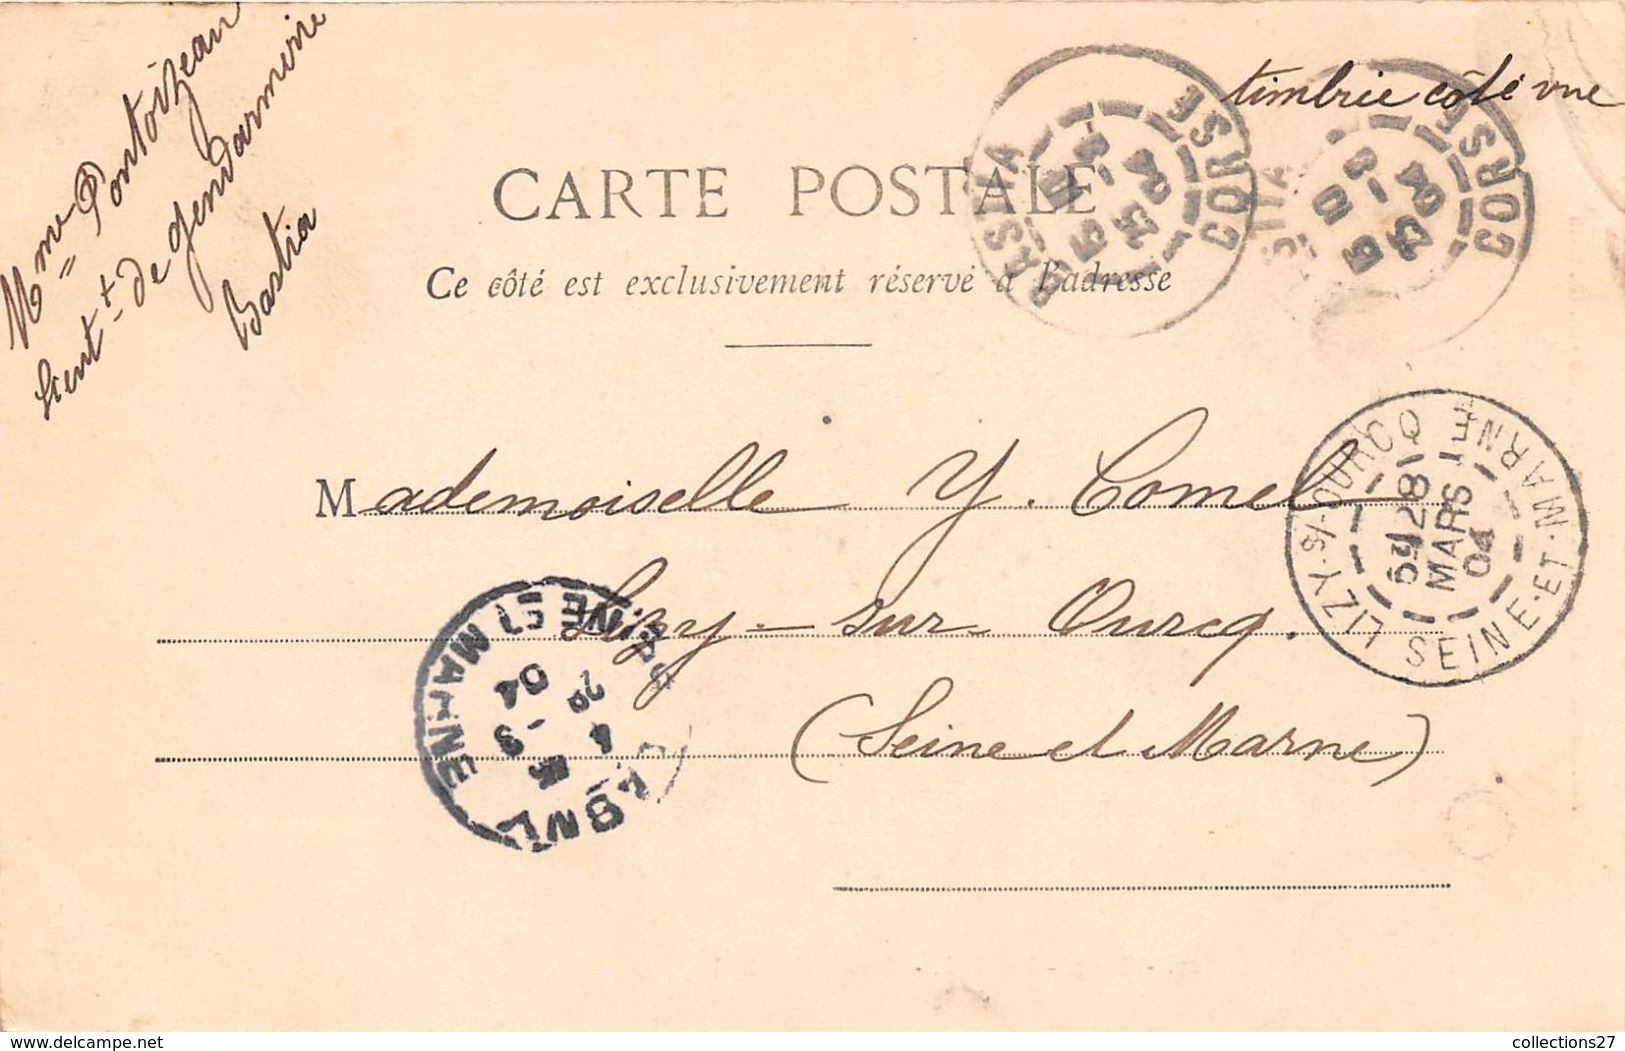 Mme Pontoizeau
Lieut. de gendarmerie
Bastia
timbrée côté vue
CARTE POSTALE
Ce côté est exclusivement réservé à l'adresse
BASTIA CORSE
5 10
23 -3
04
BASTIA CORSE
5 10
23 -3
04
Mademoiselle Y. Comel
Lizy-sur-Ourcq.
(Seine et Marne)
LIZY-S/-OURCQ SEINE-ET-MARNE
28
MARS
04
SEINE ET MARNE
-3
04
www.delcampe.net
collections27